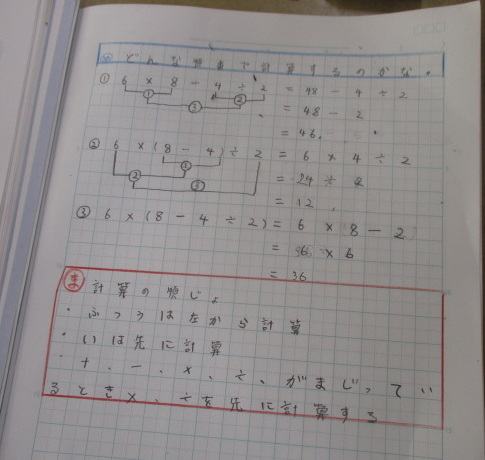 どんな順番で計算するのかな。
① 6 × 8 - 4 ÷ 2 = 48 - 4 ÷ 2
① ② ③
= 48 - 2
= 46.
② 6 × (8 - 4) ÷ 2 = 6 × 4 ÷ 2
① ② ③
= 24 ÷ 2
= 12.
③ 6 × (8 - 4 ÷ 2) = 6 × (8 - 2)
= 6 × 6
= 36
ま 計算の順じょ
・ふつうは左から計算
・( )は先に計算
・+、-、×、÷、がまじってい
るとき×、÷を先に計算する